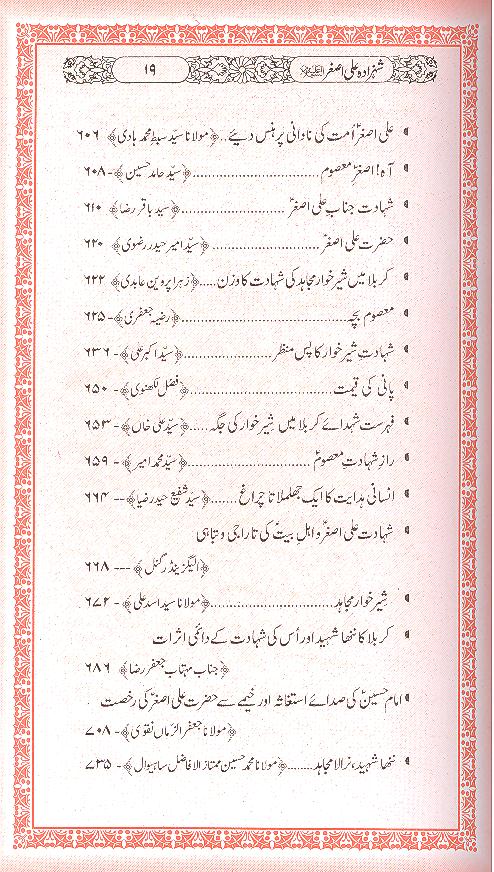 شہزادہ علی اصغر علیہ السلام
۱۹
علی اصغرؑ اُمت کی ناوانی پر ہنس دیئے..﴿مولانا سیّد سبط محمد ہادی﴾ ۶۰۶
آہ! اصغرِ معصوم ..............................﴿سیّد حامد حسین﴾-۶۰۸
شہادت جناب علی اصغرؑ ........................﴿سید باقر رضا﴾ ۶۱۰
حضرت علی اصغرؑ ........................﴿سیّد امیر حیدر رضوی﴾ ۶۲۰
کربلا میں شیر خوار مجاہد کی شہادت کا وزن.....﴿زہرا پروین عابدی﴾ ۶۲۲
معصوم بچہ........................................﴿رضیہ جعفری﴾-۶۲۵
شہادتِ شیر خوار کا پس منظر.....................﴿سیّد اکبر علی﴾-۶۳۶
پانی کی قیمت ..................................﴿فضل لکھنوی﴾-۶۵۰
فہرست شہدائے کربلا میں شیر خوار کی جگہ.....﴿سیّد علی خاں﴾-۶۵۳
راز شہادتِ معصومؑ ..............................﴿سیّد محمد امیر﴾-۶۵۹
انسانی ہدایت کا ایک جھلملاتا چراغ .......﴿سید شفیع حیدر رضیا﴾--۶۶۴
شہادت علی اصغرؑ و اہلِ بیتؑ کی تاراجی و تباہی
﴿الیگزینڈر گنل﴾ ---۶۶۸
شیر خوار مجاہد..............................﴿مولانا سید اسد علی﴾-۶۷۲
کربلا کا ننھا شہید اور اُس کی شہادت کے دائمی اثرات
﴿جناب مہتاب جعفر رضا﴾ ۶۸۶
امام حسینؑ کی صدائے استغاثہ اور خیمے سے حضرت علی اصغرؑ کی رخصت
﴿مولانا جعفر الزماں نقوی﴾-۷۰۸
ننھا شہید، نرالا مجاہد........﴿مولانا محمد حسین ممتاز الافاضل ساہیوال﴾-۷۳۵